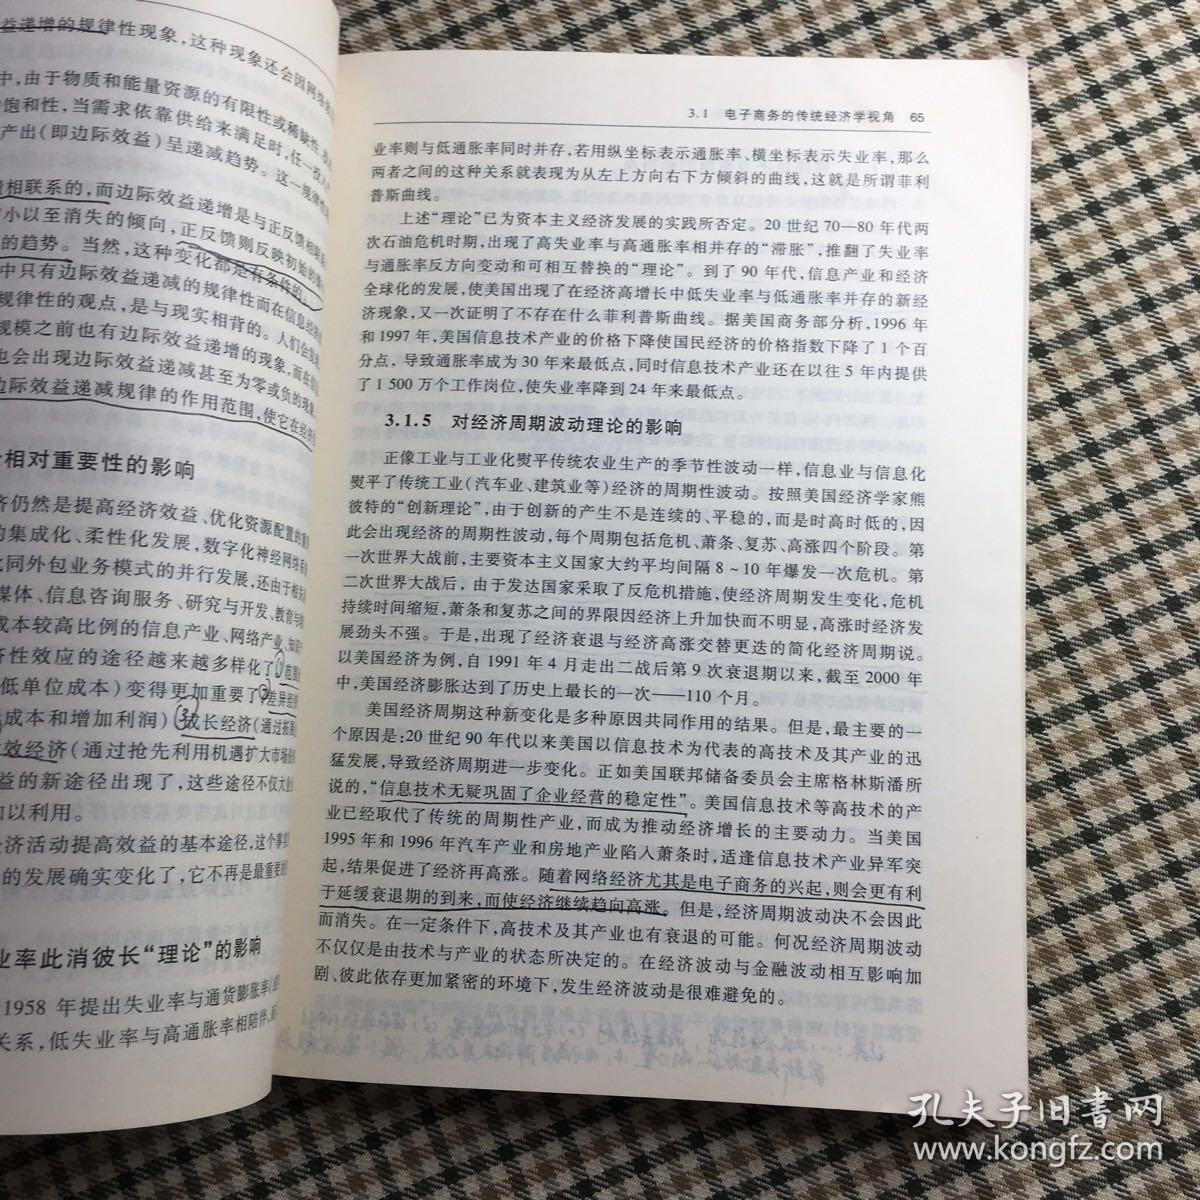 益递增的规律性现象，这种现象还会因网络
中，由于物质和能量资源的有限性或稀缺性
饱和性，当需求依靠供给来满足时，任一投入
产出(即边际效益)呈递减趋势。这一规律性
相联系的，而边际效益递增是与正反馈相联系
小以至消失的倾向，正反馈则反映初始的
的趋势。当然，这种变化都是有条件的。
中只有边际效益递减的规律性而在信息经济
规律性的观点，是与现实相背的。人们会发现
规模之前也有边际效益递增的现象，而在信
也会出现边际效益递减甚至为零或负的现象
边际效益递减规律的作用范围，使它在经济
相对重要性的影响
济仍然是提高经济效益、优化资源配置的重
的集成化、柔性化发展，数字化神经网络系
同外包业务模式的并行发展，还由于相关
媒体、信息咨询服务、研究与开发、教育与
成本较高比例的信息产业、网络产业、知识
济性效应的途径越来越多样化了①范围
低单位成本)变得更加重要了②差异经
成本和增加利润)③成长经济(通过拓展
效经济(通过抢先利用机遇扩大市场份
益的新途径出现了，这些途径不仅大
加以利用。
经济活动提高效益的基本途径，这个事实
的发展确实变化了，它不再是最重要
业率此消彼长“理论”的影响
1958 年提出失业率与通货膨胀率
关系，低失业率与高通胀率相陪伴，
3.1 电子商务的传统经济学视角 65
业率则与低通胀率同时并存，若用纵坐标表示通胀率、横坐标表示失业率，那么
两者之间的这种关系就表现为从左上方向右下方倾斜的曲线，这就是所谓菲利
普斯曲线。
上述“理论”已为资本主义经济发展的实践所否定。20 世纪 70—80 年代两
次石油危机时期，出现了高失业率与高通胀率相并存的“滞胀”，推翻了失业率
与通胀率反方向变动和可相互替换的“理论”。到了 90 年代，信息产业和经济
全球化的发展，使美国出现了在经济高增长中低失业率与低通胀率并存的新经
济现象，又一次证明了不存在什么菲利普斯曲线。据美国商务部分析，1996 年
和 1997 年，美国信息技术产业的价格下降使国民经济的价格指数下降了 1 个百
分点，导致通胀率成为 30 年来最低点，同时信息技术产业还在以往 5 年内提供
了 1 500 万个工作岗位，使失业率降到 24 年来最低点。
3.1.5 对经济周期波动理论的影响
正像工业与工业化熨平传统农业生产的季节性波动一样，信息业与信息化
熨平了传统工业(汽车业、建筑业等)经济的周期性波动。按照美国经济学家熊
彼特的“创新理论”，由于创新的产生不是连续的、平稳的，而是时高时低的，因
此会出现经济的周期性波动，每个周期包括危机、萧条、复苏、高涨四个阶段。第
一次世界大战前，主要资本主义国家大约平均间隔 8～10 年爆发一次危机。第
二次世界大战后，由于发达国家采取了反危机措施，使经济周期发生变化，危机
持续时间缩短，萧条和复苏之间的界限因经济上升加快而不明显，高涨时经济发
展劲头不强。于是，出现了经济衰退与经济高涨交替更迭的简化经济周期说。
以美国经济为例，自 1991 年 4 月走出二战后第 9 次衰退期以来，截至 2000 年
中，美国经济膨胀达到了历史上最长的一次——110 个月。
美国经济周期这种新变化是多种原因共同作用的结果。但是，最主要的一
个原因是：20 世纪 90 年代以来美国以信息技术为代表的高技术及其产业的迅
猛发展，导致经济周期进一步变化。正如美国联邦储备委员会主席格林斯潘所
说的，“信息技术无疑巩固了企业经营的稳定性”。美国信息技术等高技术的产
业已经取代了传统的周期性产业，而成为推动经济增长的主要动力。当美国
1995 年和 1996 年汽车产业和房地产业陷入萧条时，适逢信息技术产业异军突
起，结果促进了经济再高涨。随着网络经济尤其是电子商务的兴起，则会更有利
于延缓衰退期的到来，而使经济继续趋向高涨。但是，经济周期波动决不会因此
而消失。在一定条件下，高技术及其产业也有衰退的可能。何况经济周期波动
不仅仅是由技术与产业的状态所决定的。在经济波动与金融波动相互影响加
剧、彼此依存更加紧密的环境下，发生经济波动是很难避免的。
孔夫子旧书网
www.kongfz.com